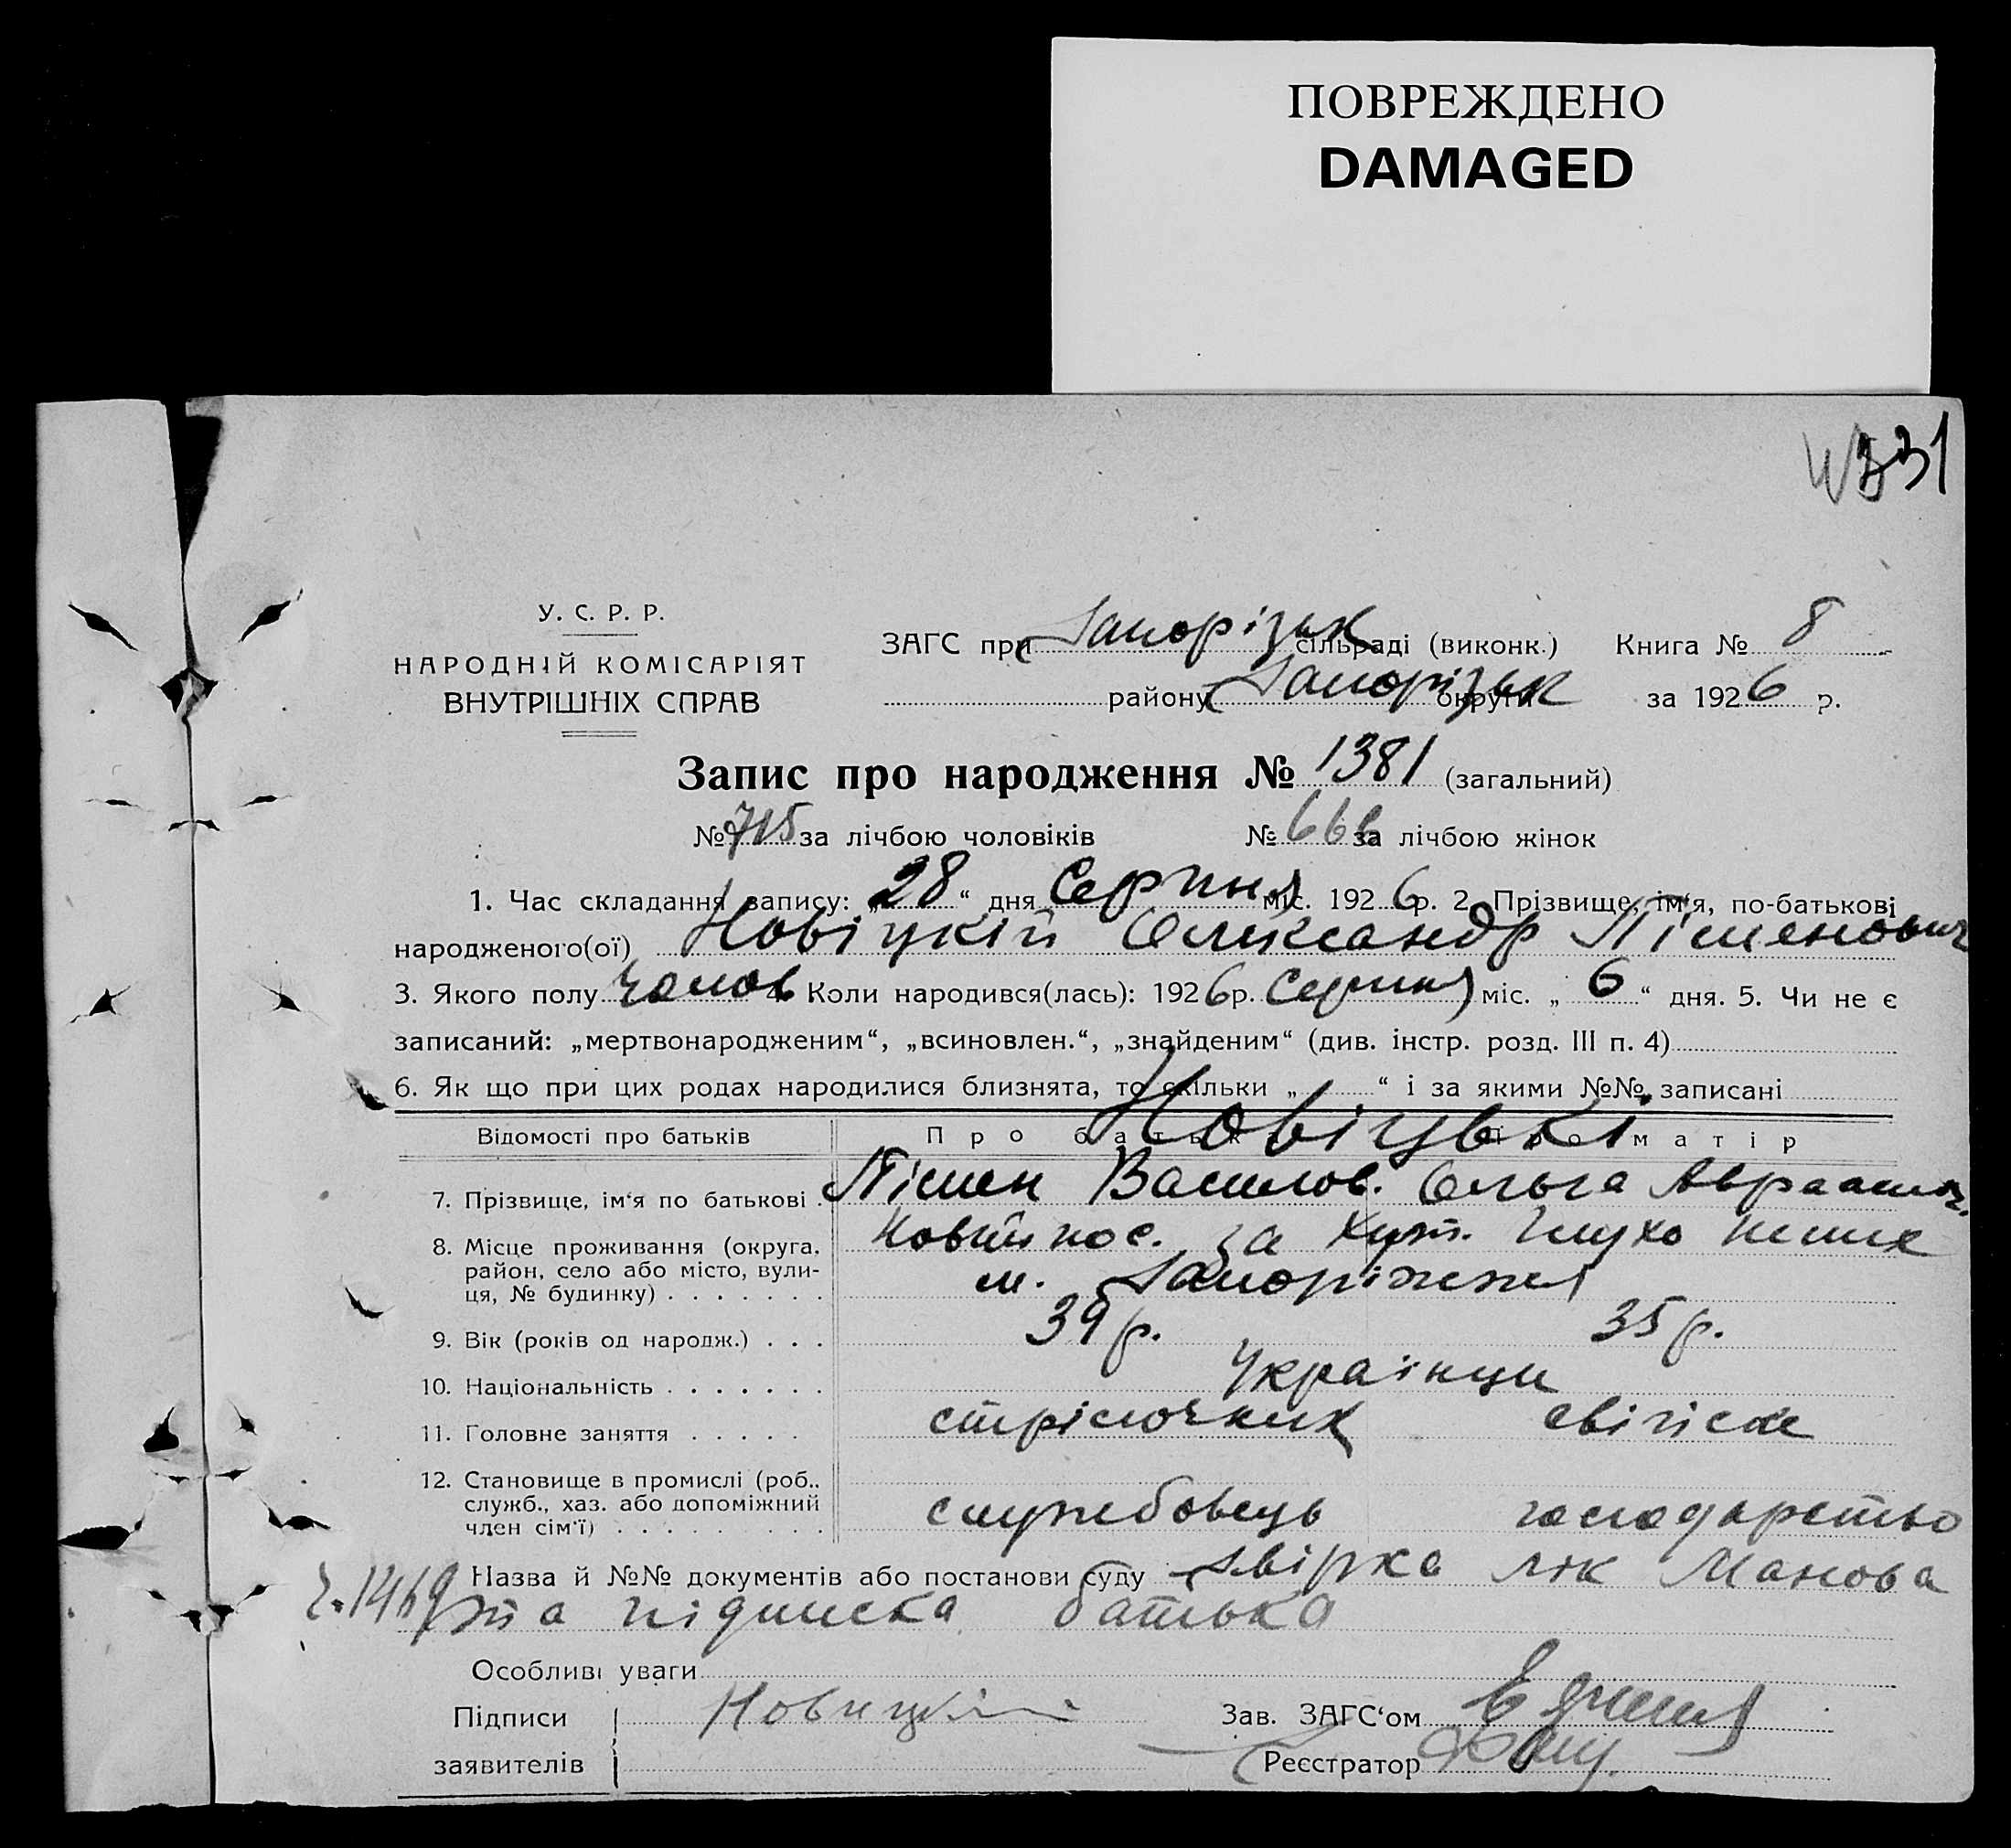 ПОВРЕЖДЕНО
DAMAGED
331
У. С. Р. Р.
НАРОДНІЙ КОМІСАРІЯТ
ВНУТРІШНІХ СПРАВ
ЗАГС при Запорізьк сільраді (виконк.) Книга № 8
району Запорізьк округи за 1926 р.
Запис про народження № 1381 (загальний)
№ 715 за лічбою чоловіків № 666 за лічбою жінок
1. Час складання запису: „28“ дня Серпня міс. 1926 р. 2. Прізвище, ім'я, по-батькові
народженого(ої) Новіцкій Олександр Піменович
3. Якого полу чолов Коли народився(лась): 1926 р. Серпня міс. „6“ дня. 5. Чи не є
записаний: „мертвонародженим“, „всиновлен.“, „знайденим“ (див. інстр. розд. III п. 4)
6. Як що при цих родах народилися близнята, то скільки „ “ і за якими №№ записані
Відомості про батьків Про батька Про матір
Новіцькі
7. Прізвище, ім'я по батькові Пімен Василов. Ольга Авраамов.
8. Місце проживання (округа, район, село або місто, вулиця, № будинку) пос. за хут.
м. Запоріжжя
9. Вік (років од народж.) 39 р. 35 р.
10. Національність Українци
11. Головне заняття стрілочник
12. Становище в промислі (роб., служб., хаз. або допоміжний член сім'ї) службовець господарство
Назва й №№ документів або постанови суду
ч. 1469 та підписка батька
Особливі уваги
Підписи Новицкій Зав. ЗАГС'ом
заявителів Реєстратор